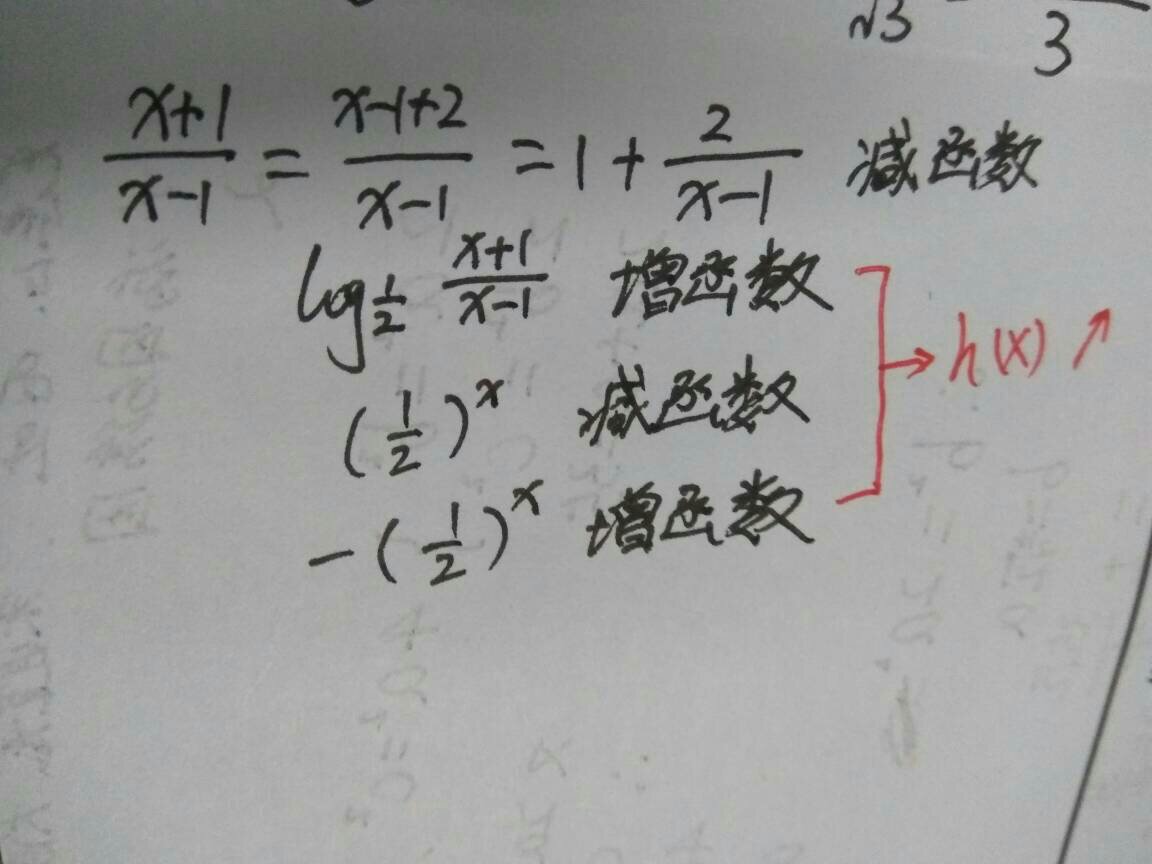 √3 3
x+1/x-1 = x-1+2/x-1 = 1 + 2/x-1 减函数
log 1/2 x+1/x-1 增函数
(1/2)^x 减函数 → h(x) ↗
-(1/2)^x 增函数